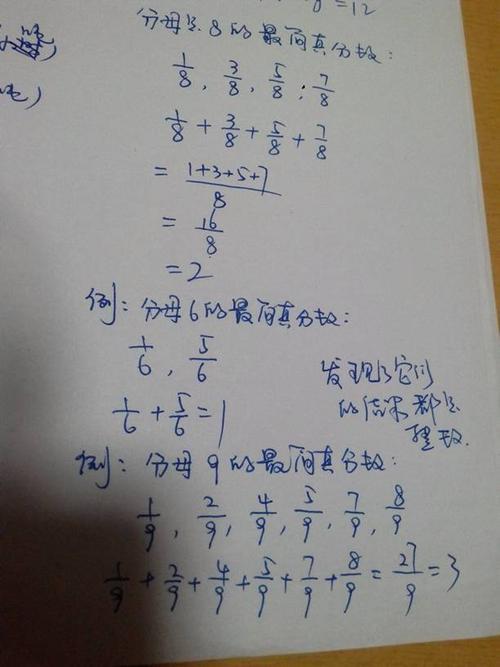 =12
分母是8的最简真分数:
1/8, 3/8, 5/8, 7/8
1/8 + 3/8 + 5/8 + 7/8
= (1+3+5+7)/8
= 16/8
= 2
例: 分母6的最简真分数:
1/6, 5/6
1/6 + 5/6 = 1
发现了它们
的结果都是
整数.
例: 分母9的最简真分数:
1/9, 2/9, 4/9, 5/9, 7/9, 8/9
1/9 + 2/9 + 4/9 + 5/9 + 7/9 + 8/9 = 27/9 = 3